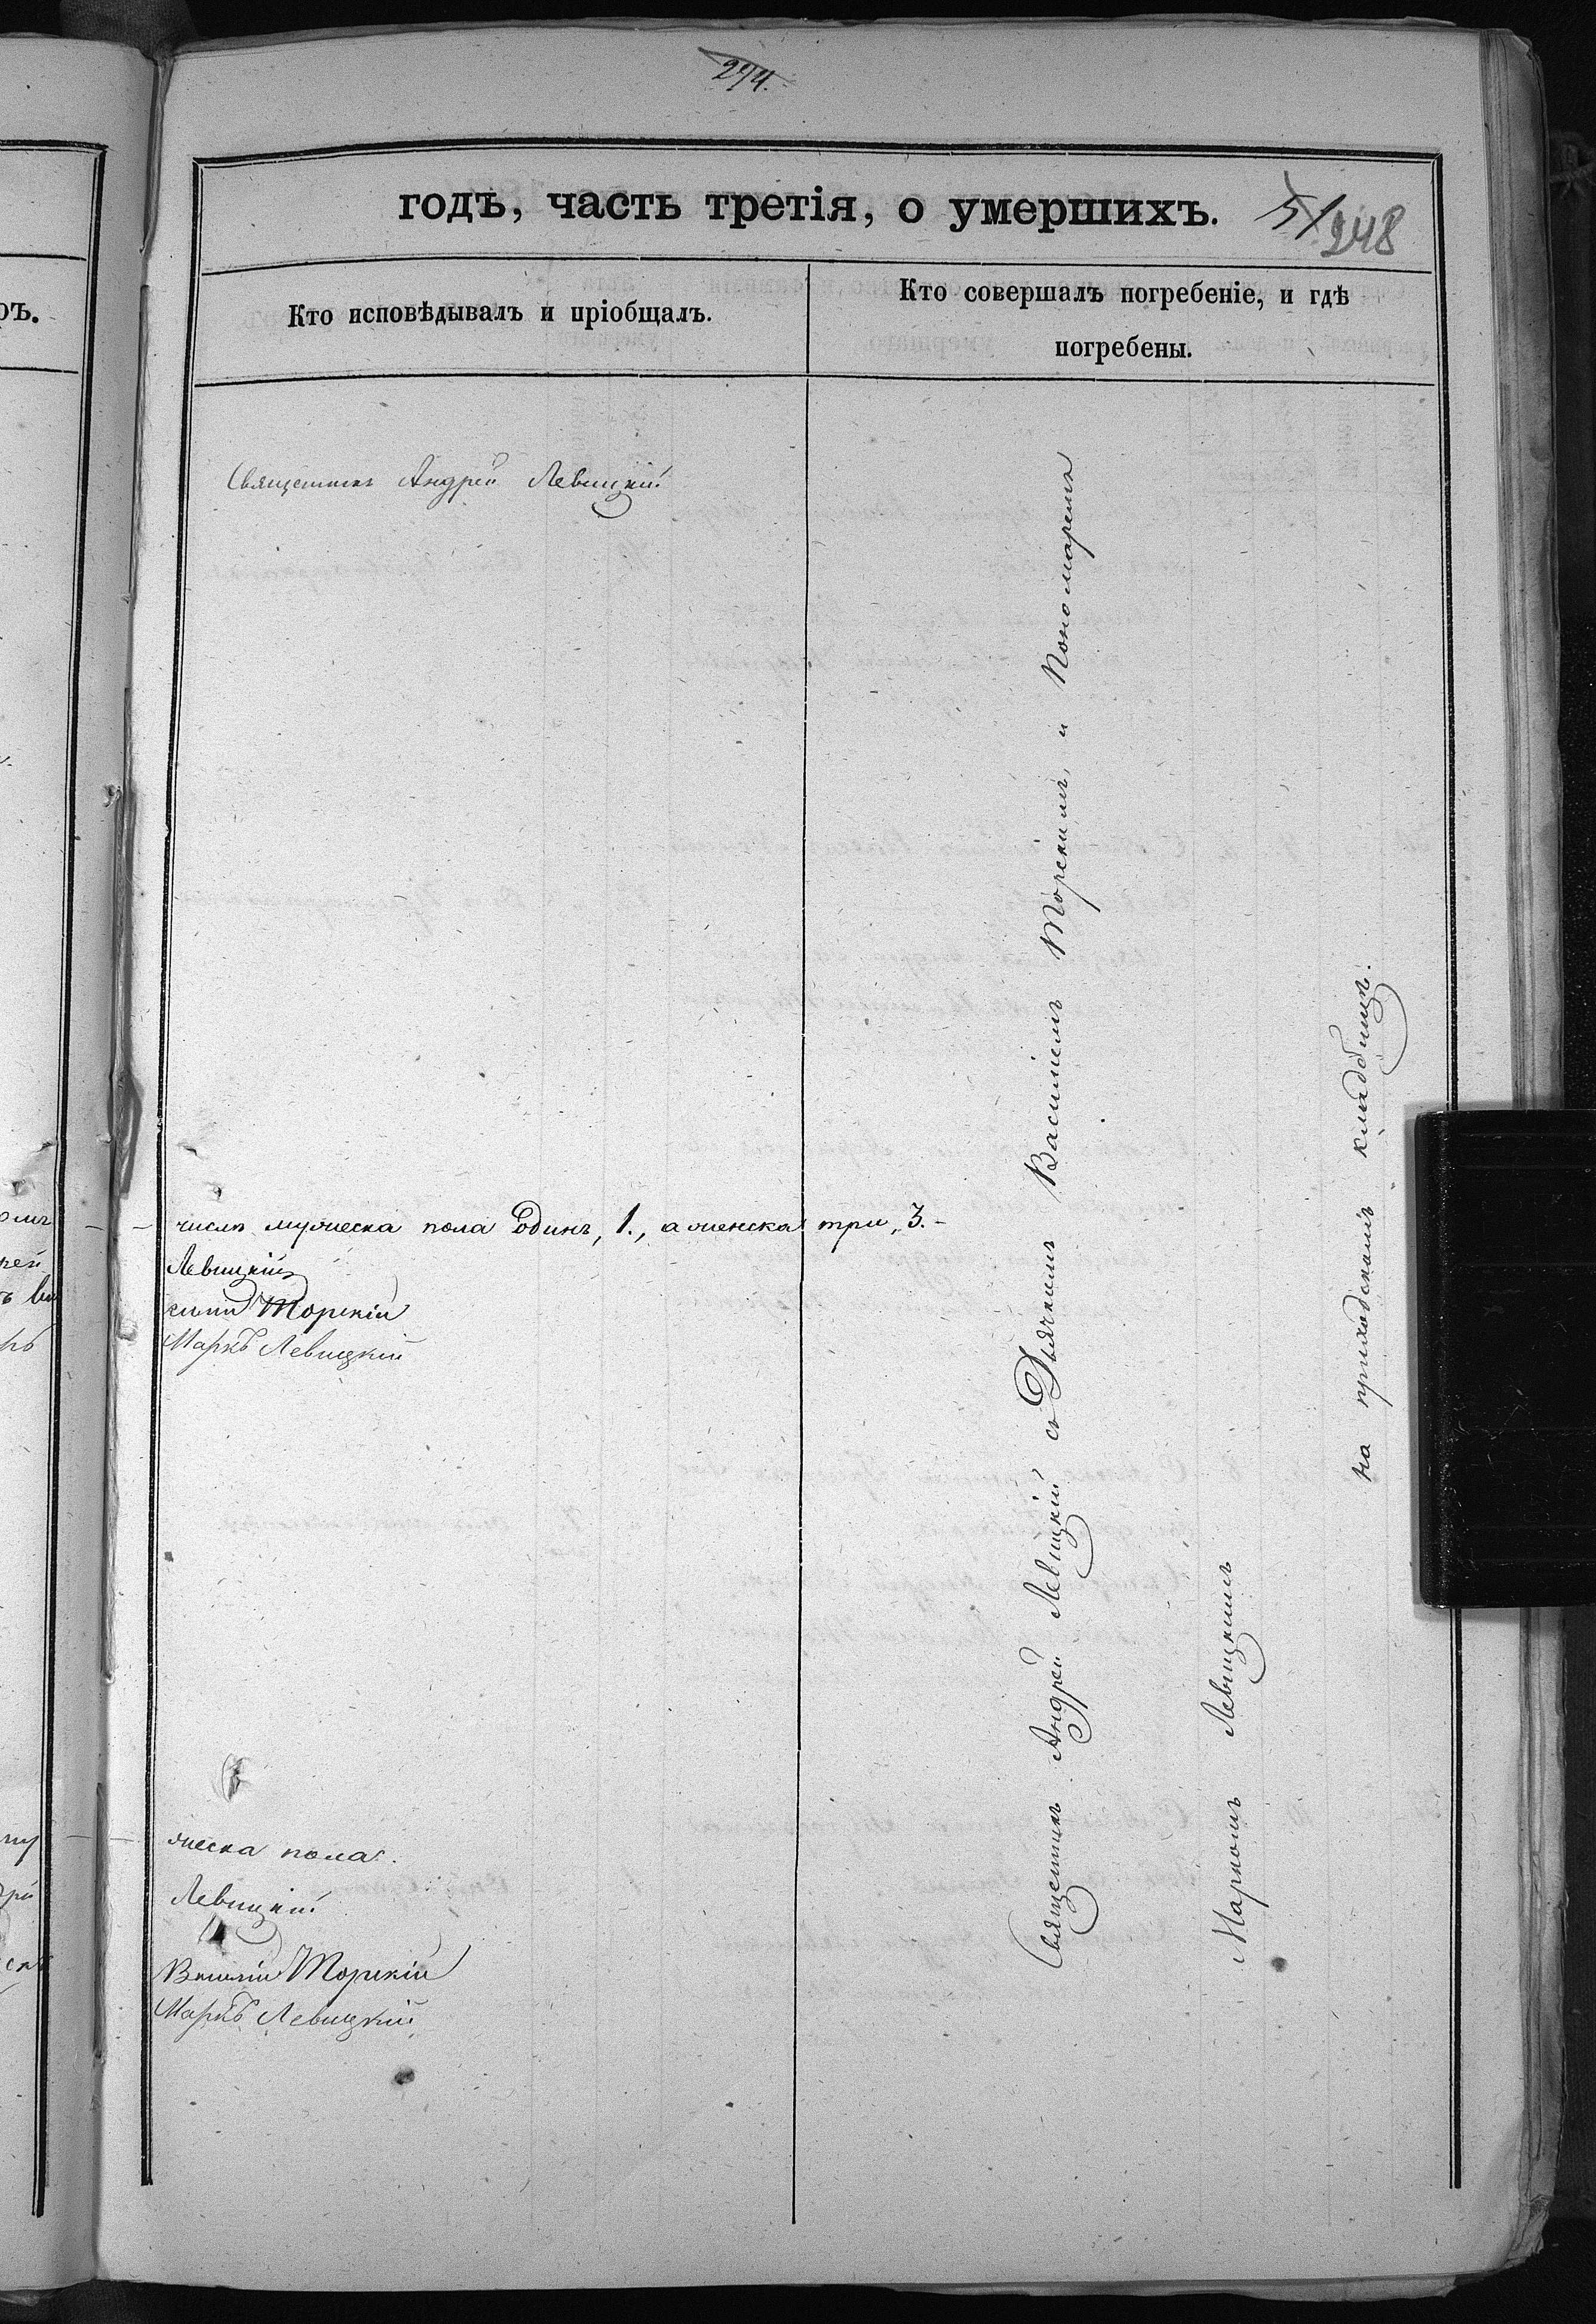 274.
годъ, часть третія, о умершихъ.
51
248
Кто исповѣдывалъ и пріобщалъ.
Кто совершалъ погребеніе, и гдѣ
погребены.
ръ.
Священникъ Андрей Левицкій
Священникъ Андрей Левицкій съ Дьячкомъ Василіемъ Торскимъ, и Пономаремъ
Маркомъ Левицкимъ
на приходскомъ кладбищѣ.
числѣ мужеска пола Одинъ, 1., а женска три, 3.-
Левицкій
Торскій
Маркъ Левицкій
жеска пола.
Левицкій
Василій Торскій
Маркъ Левицкій